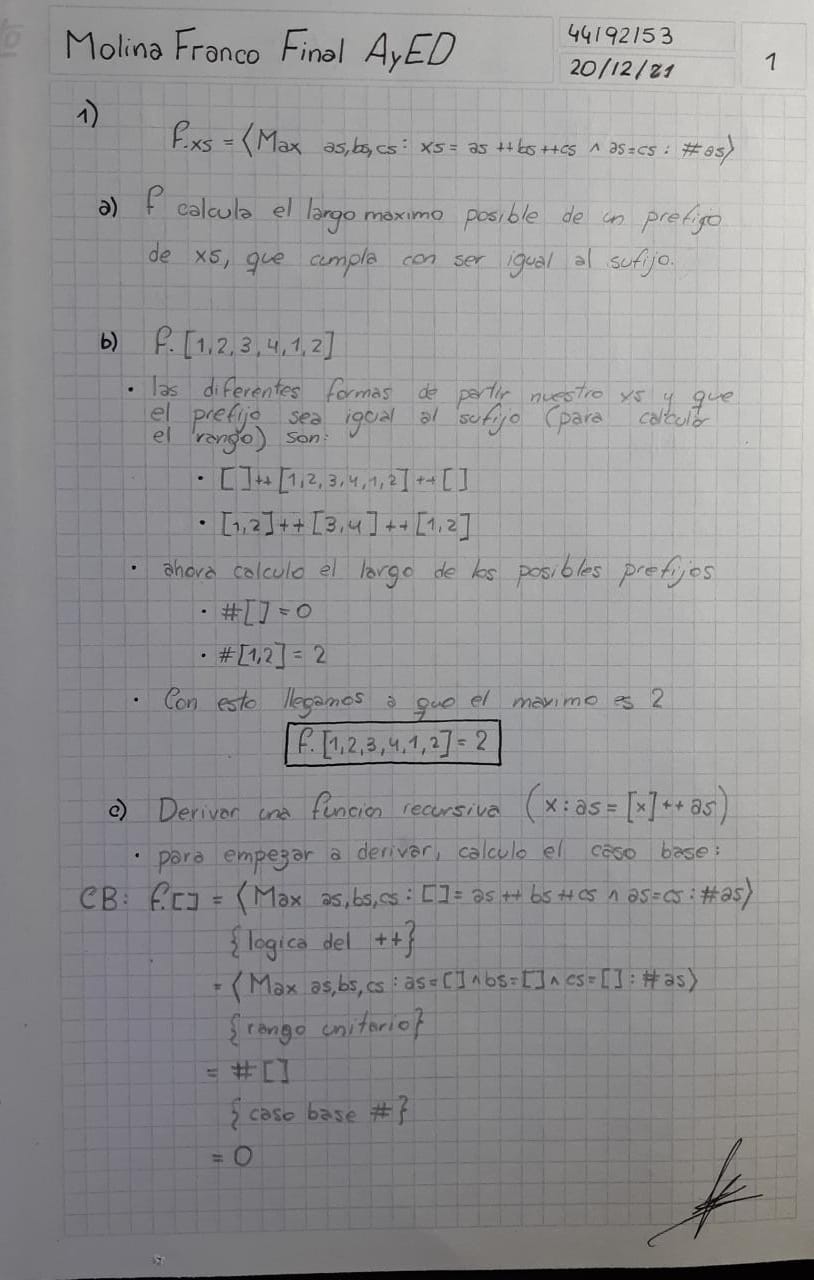 Molina Franco Final AyED
44192153
20/12/21
1
1)
f.xs = ⟨Max as,bs,cs : xs = as ++ bs ++ cs ∧ as=cs : #as⟩
a) f calcula el largo maximo posible de un prefijo
de xs, que cumpla con ser igual al sufijo.
b) f.[1,2,3,4,1,2]
• las diferentes formas de partir nuestro xs y que
el prefijo sea igual al sufijo (para calcular
el rango) son:
• []++[1,2,3,4,1,2]++[]
• [1,2]++[3,4]++[1,2]
• ahora calculo el largo de los posibles prefijos
• #[]=0
• #[1,2]=2
• Con esto llegamos a que el maximo es 2
f.[1,2,3,4,1,2]=2
c) Derivar una funcion recursiva (x:as = [x]++as)
• para empezar a derivar, calculo el caso base:
CB: f.[] = ⟨Max as,bs,cs : []= as ++ bs ++ cs ∧ as=cs : #as⟩
{logica del ++}
= ⟨Max as,bs,cs : as=[] ∧ bs=[] ∧ cs=[] : #as⟩
{rango unitario}
= #[]
{caso base #}
= 0